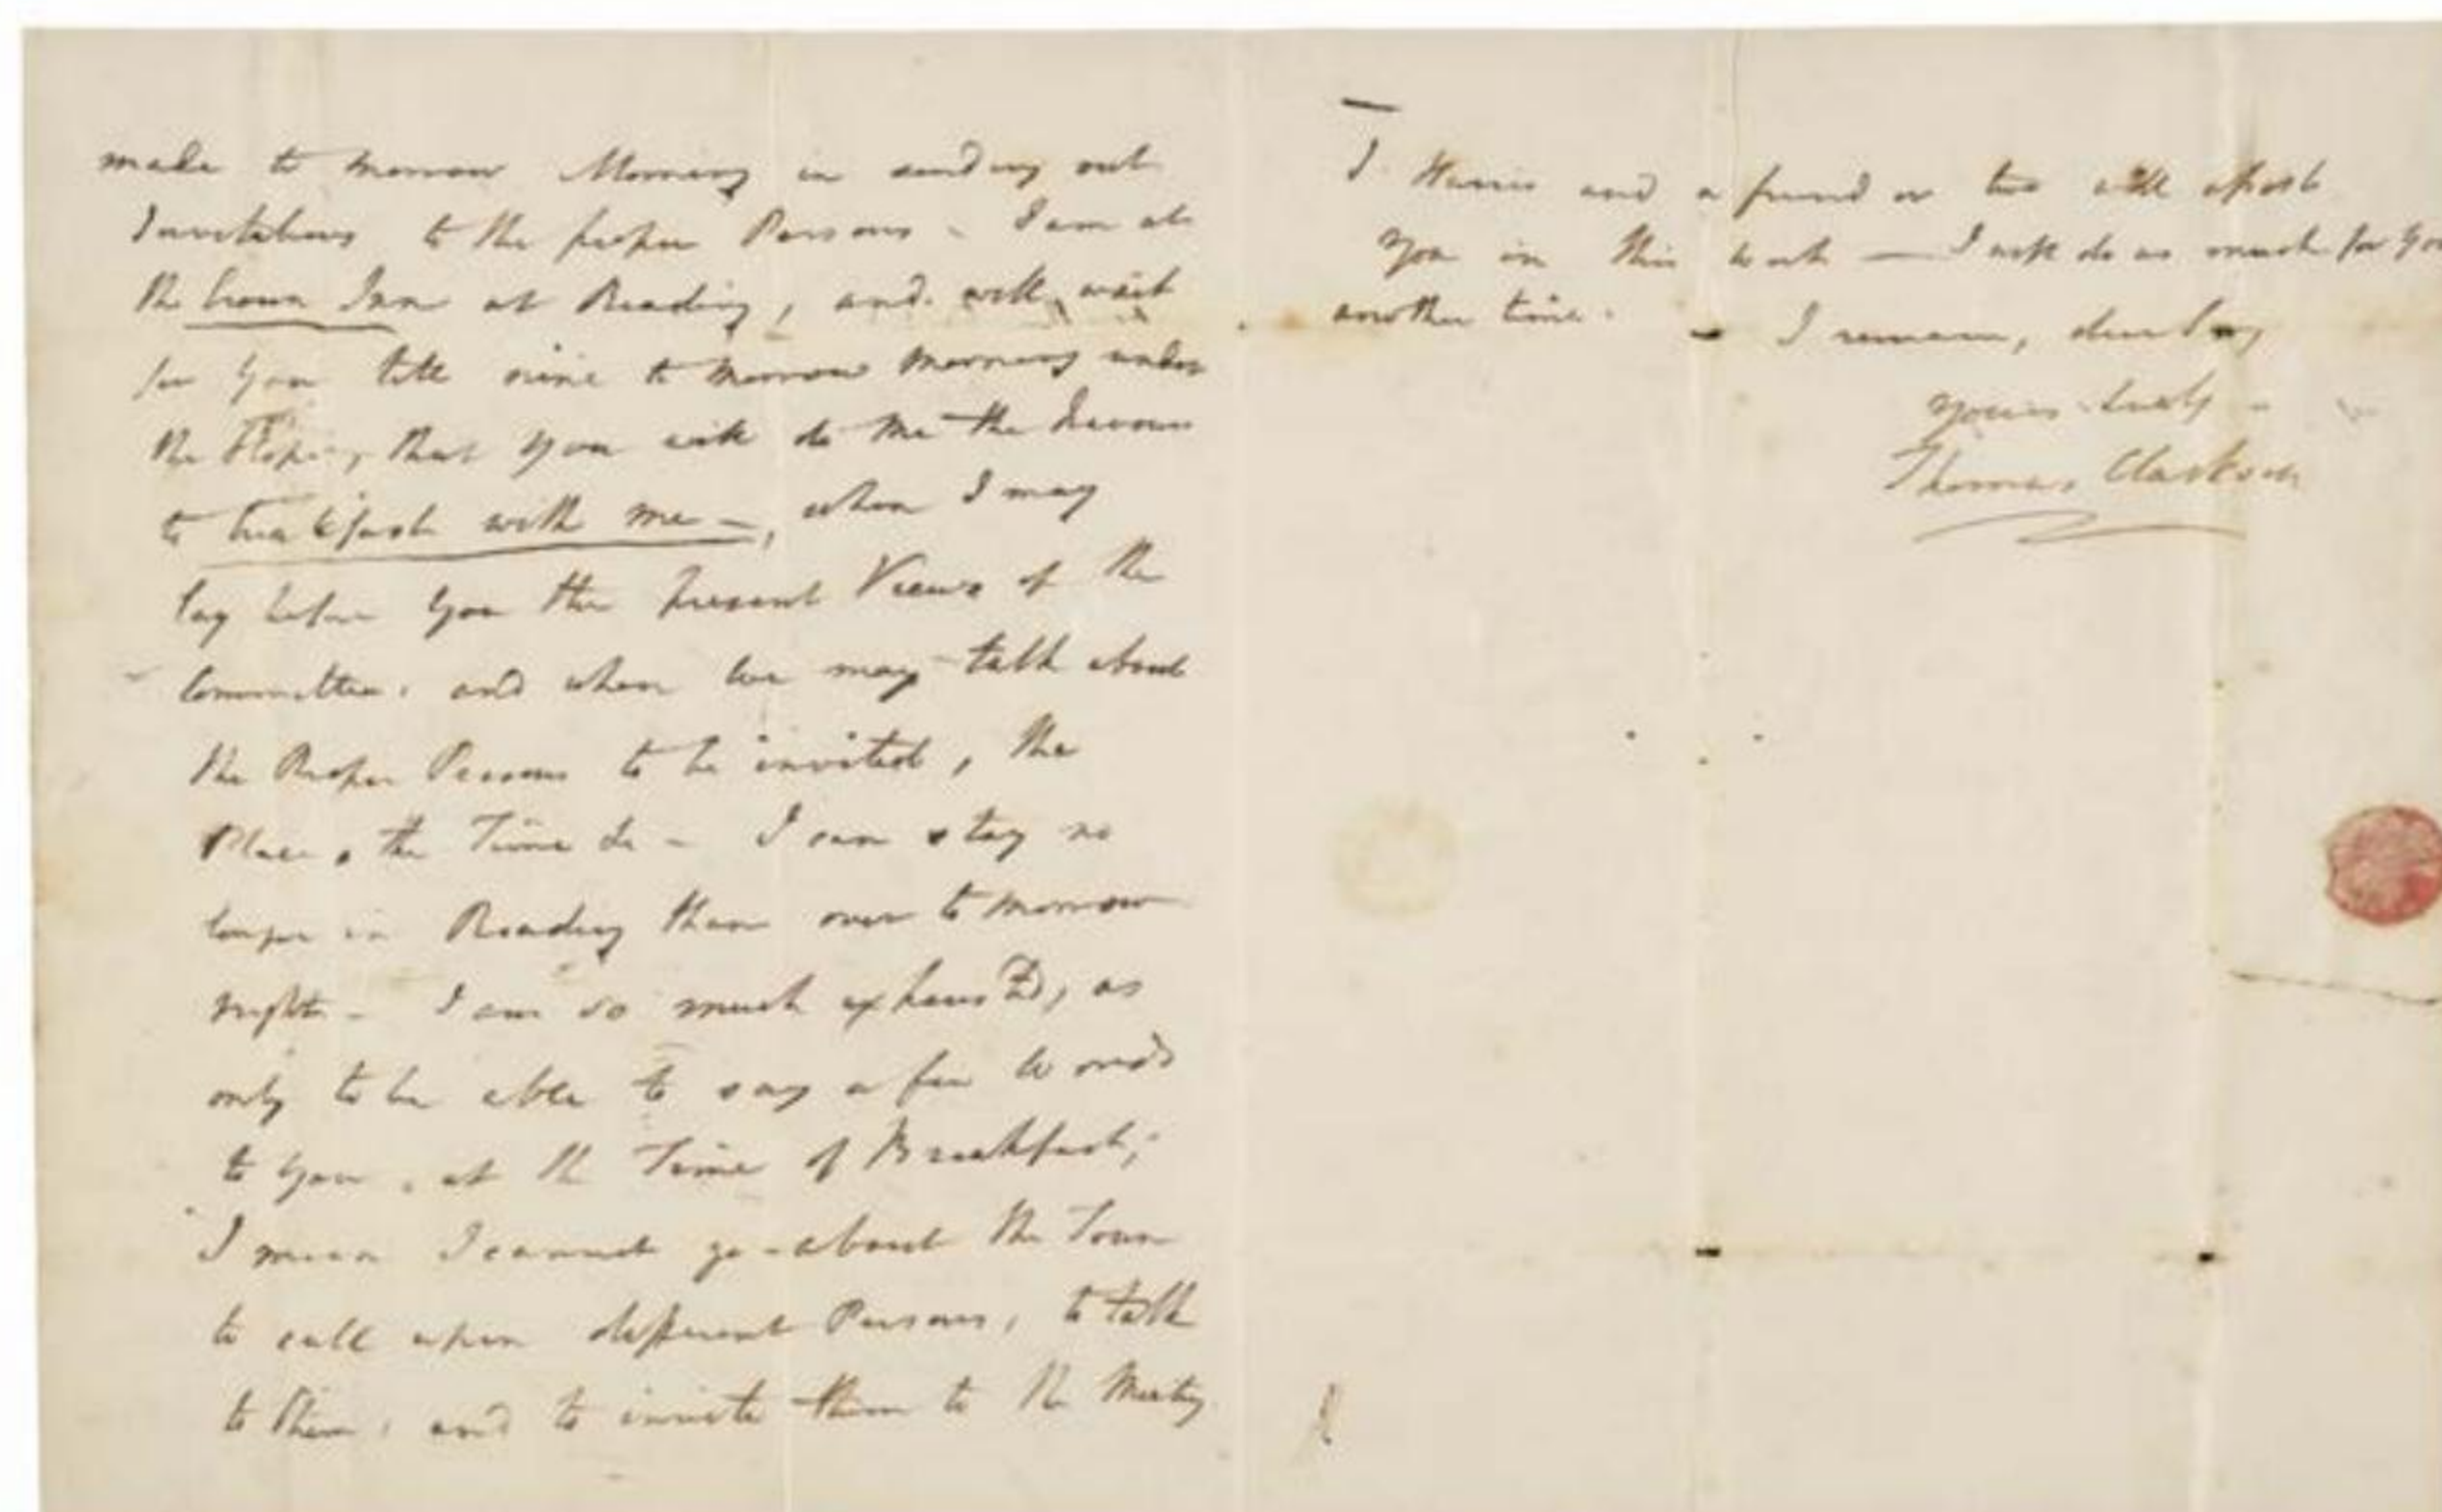 made to morrow Morning in sending out
Invitations to the proper Persons - I am at
the Crown Inn at Reading, and will wait
for You till nine to morrow morning under
the Hope, that you will do me the favour
to breakfast with me -, when I may
lay before You the present Views of the
Committee, and when we may talk about
the Proper Persons to be invited, the
Place, the Time &c - I can stay no
longer in Reading than over to morrow
night - I am so much exhausted, as
only to be able to say a few words
to You, at the Time of Breakfast;
I mean I cannot go about the Town
to call upon different Persons, to talk
to them, and to invite them to the Meeting
J. Harris and a friend or two will assist
You in this work — I will do as much for You
another time.
I remain, dear
Yours truly -
Thomas Clarkson